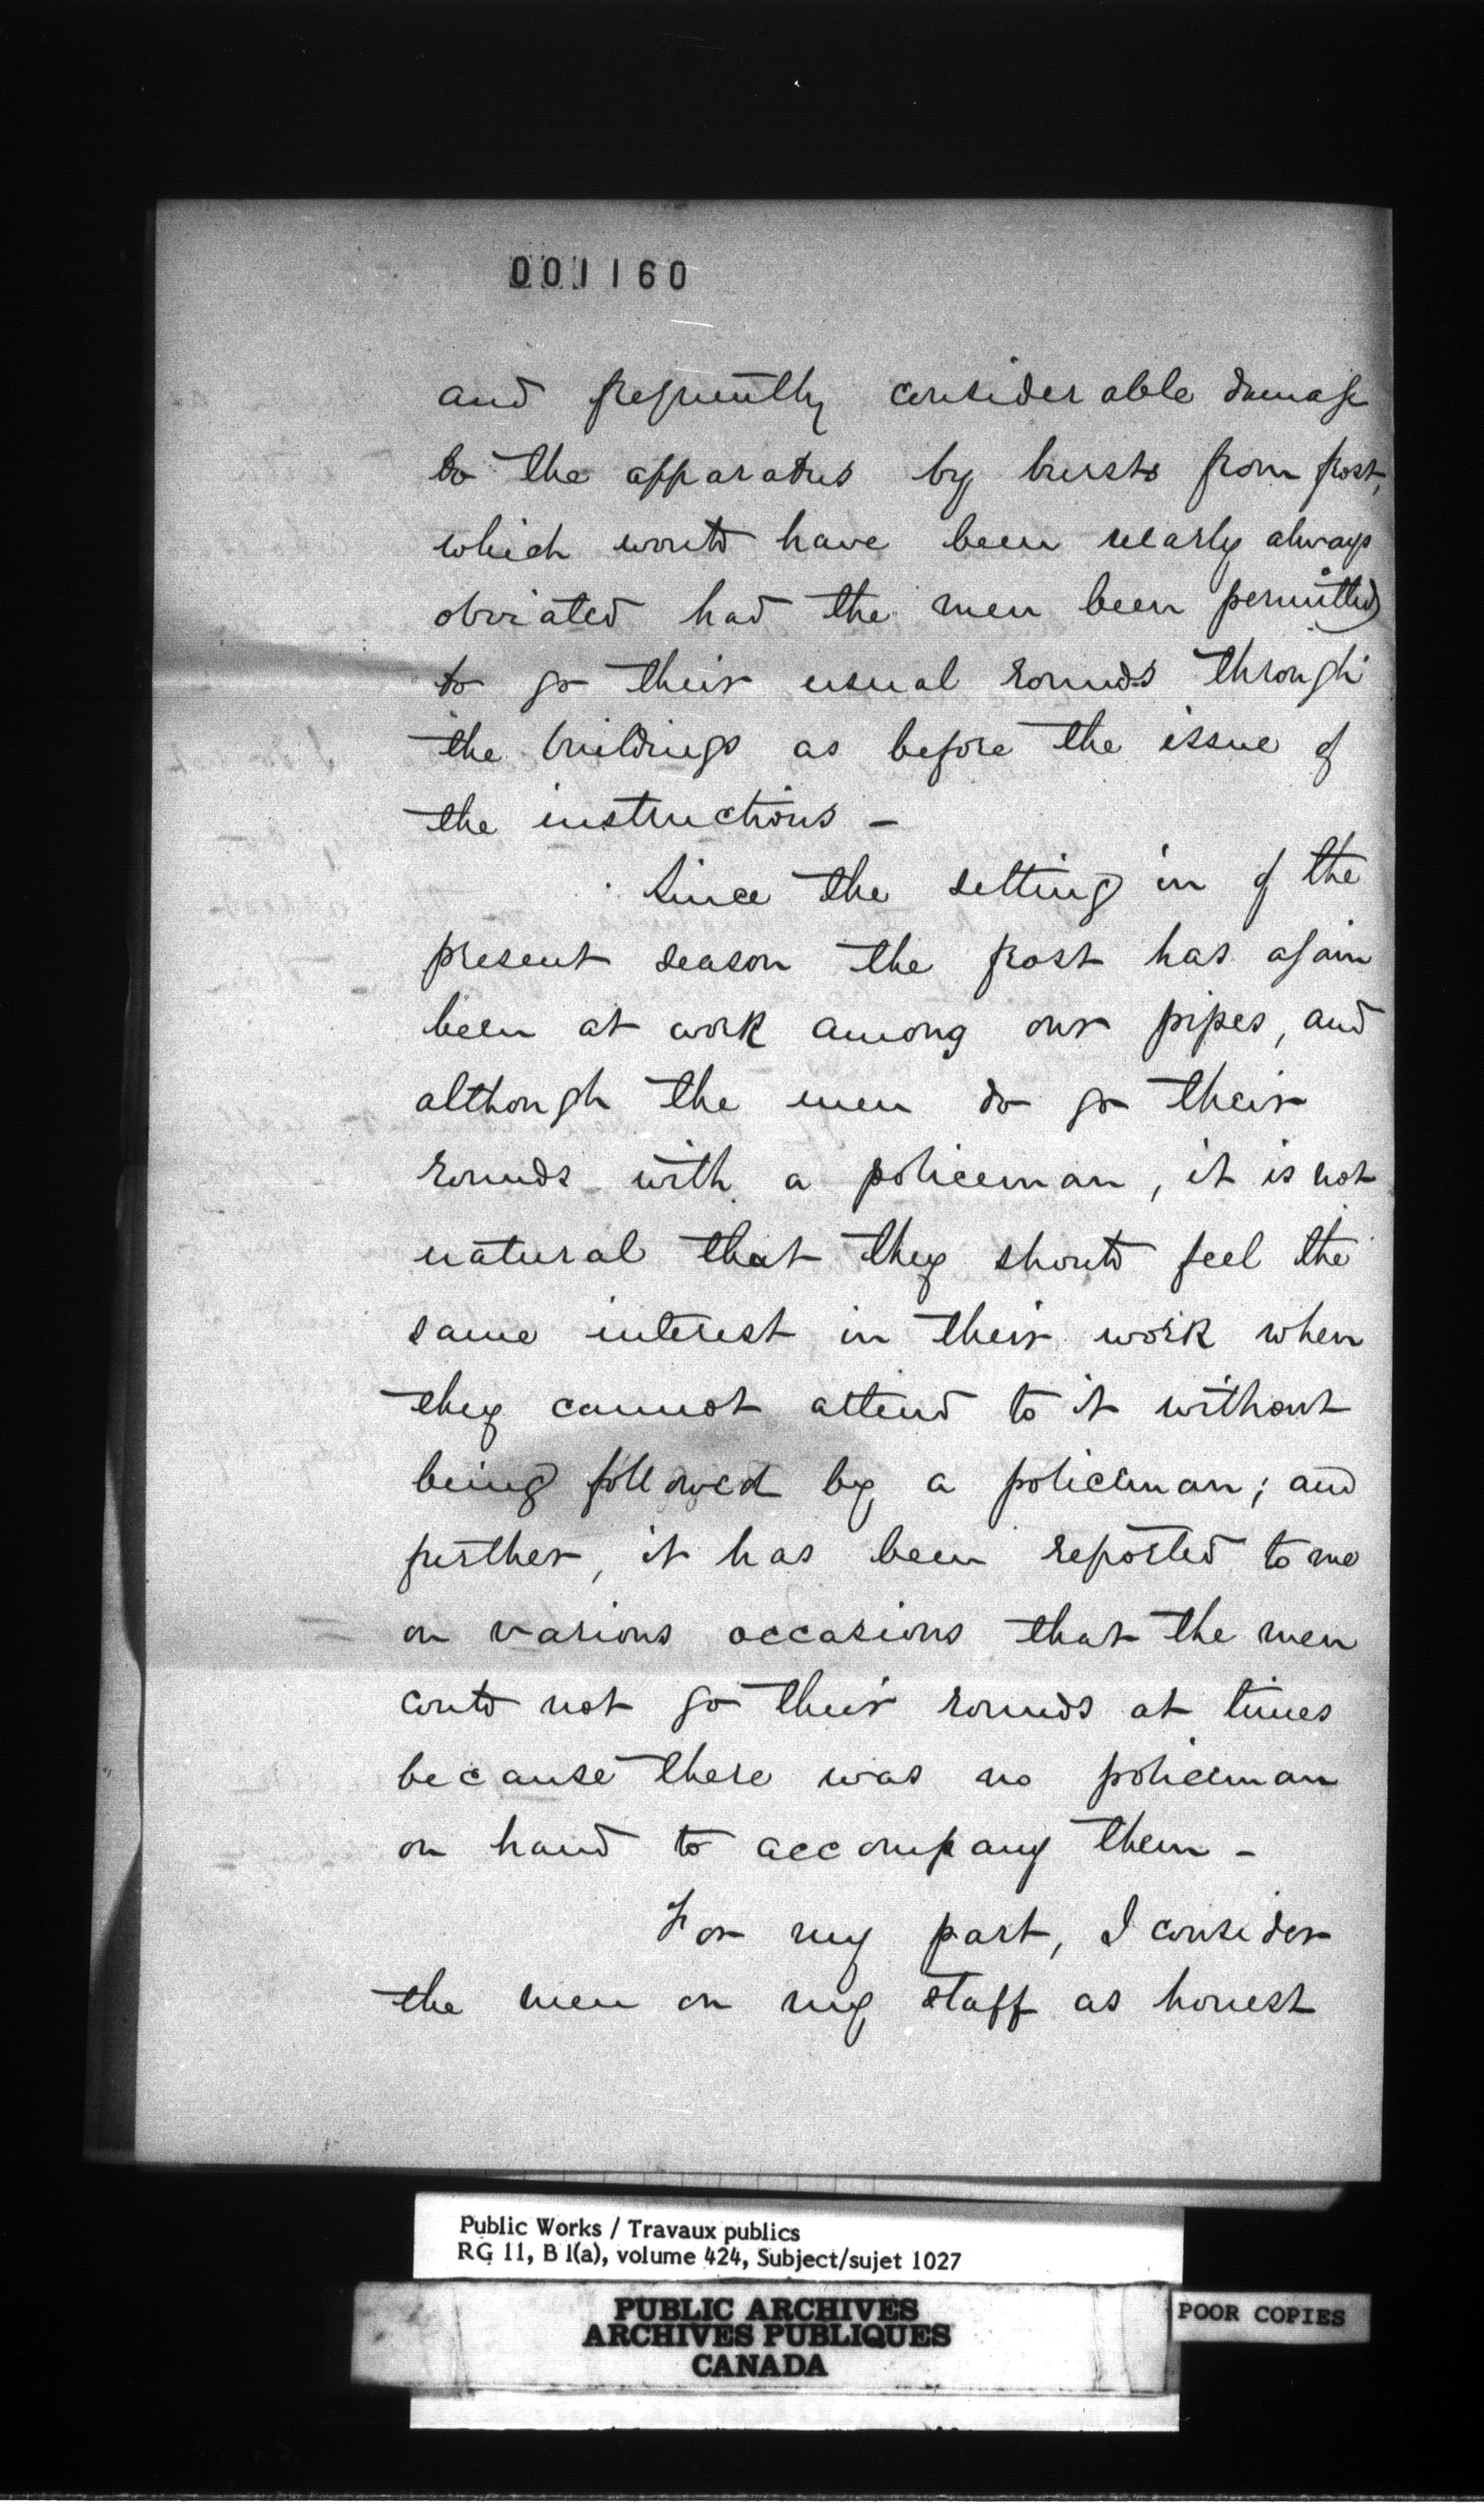 001160
and frequently considerable damage
to the apparatus by bursts from frost,
which would have been nearly always
obviated had the men been permitted
to go their usual rounds through
the buildings as before the issue of
the instructions –
Since the setting in of the
present season the frost has again
been at work among our pipes, and
although the men do go their
rounds with a policeman, it is not
natural that they should feel the
same interest in their work when
they cannot attend to it without
being followed by a policeman; and
further, it has been reported to me
on various occasions that the men
could not go their rounds at times
because there was no policeman
on hand to accompany them –
For my part, I consider
the men on my staff as honest
Public Works / Travaux publics
RG 11, B 1(a), volume 424, Subject/sujet 1027
PUBLIC ARCHIVES
ARCHIVES PUBLIQUES
CANADA
POOR COPIES